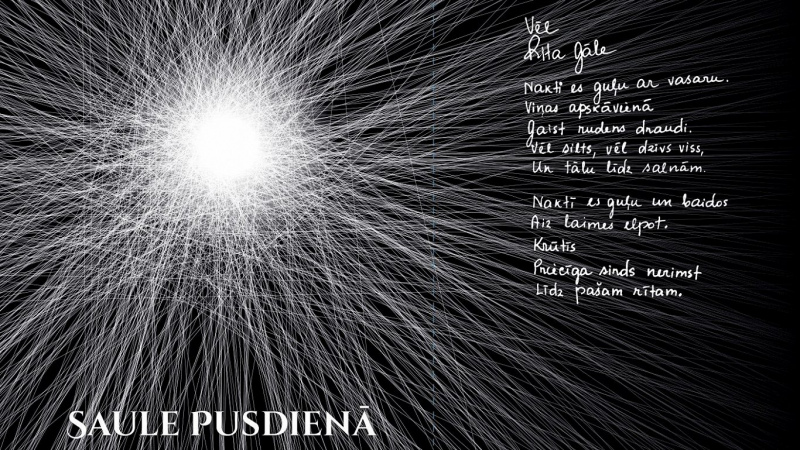 Vēl
Rita Gāle
Naktī es guļu ar vasaru.
Viņas apskāvienā
Gaist rudens draudi.
Vēl silts, vēl dzīvs viss,
Un tālu līdz salnām.
Naktī es guļu un baidos
Aiz laimes elpot.
Krūtīs
Priecīga sirds nerimst
Līdz pašam rītam.
SAULE PUSDIENĀ